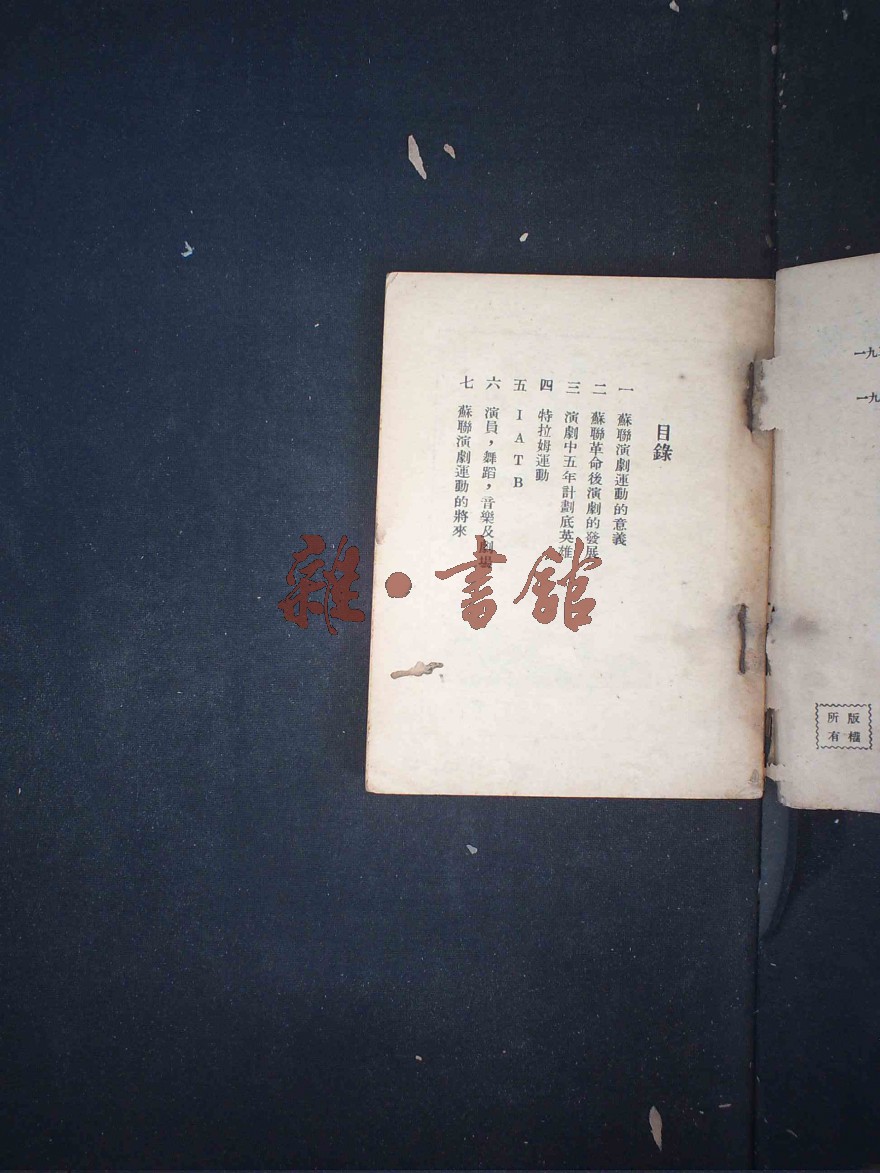 一九
一九
版權
所有
目錄
一 蘇聯演劇運動的意義
二 蘇聯革命後演劇的發展
三 演劇中五年計劃底英雄
四 特拉姆運動
五 IATB
六 演員，舞蹈，音樂及劇場
七 蘇聯演劇運動的將來
雜·書館